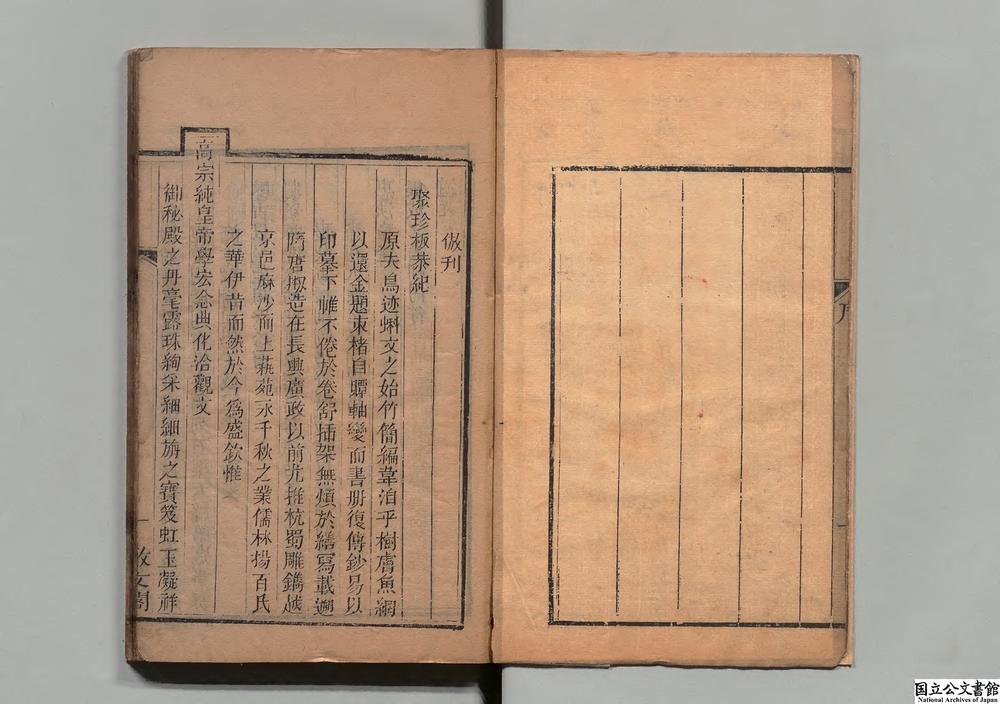 序
倣刊
聚珍板恭紀
原夫鳥迹蝌文之始竹簡編韋泊乎樹膚魚網
以還金題束楮自賾軸變而書册復傳鈔易以
印摹下帷不倦於卷舒插架無煩於繕寫載遡
隋唐掇造在長興廣政以前尤推杭蜀雕鐫越
京邑麻沙而上蓺苑永千秋之業儒林揚百氏
之華伊昔而然於今爲盛欽惟
高宗純皇帝學宏念典化洽觀文
御秘殿之丹毫露珠絢采細細旃之寶笈虹玉凝祥
一
國立公文書館
National Archives of Japan